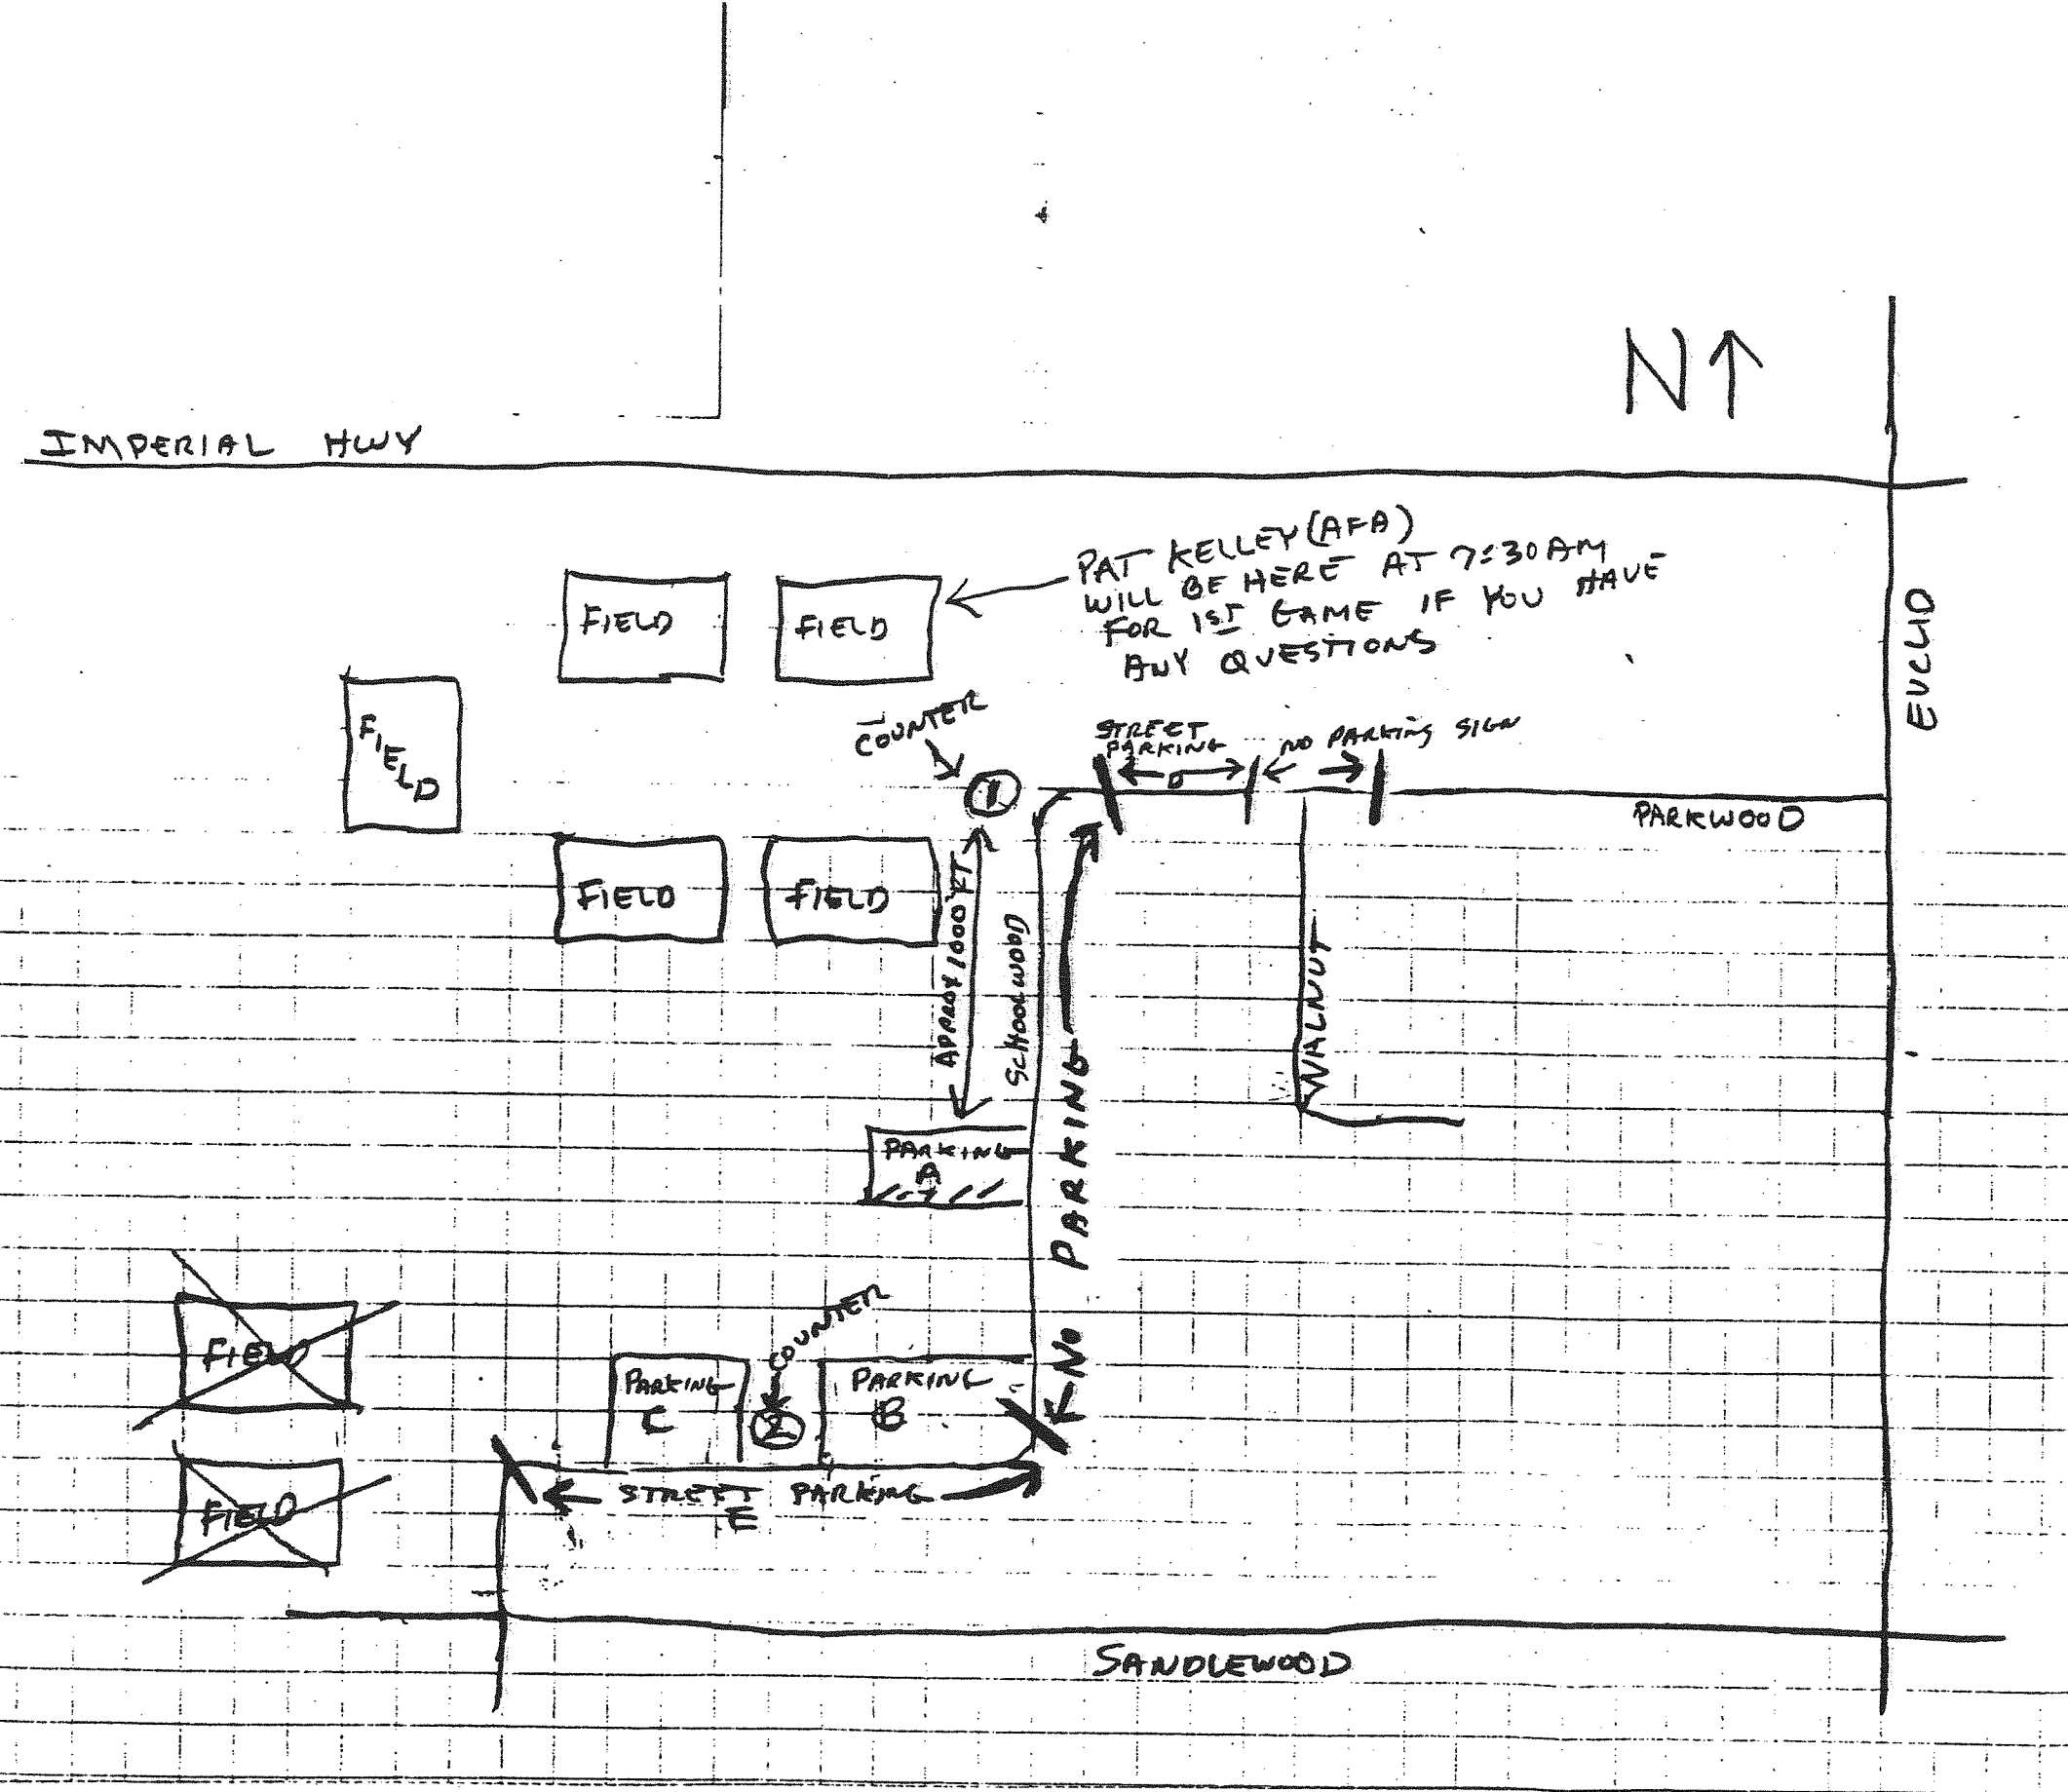 N
IMPERIAL HWY
PAT KELLEY (AFA)
WILL BE HERE AT 7:30AM
FOR 1ST GAME IF YOU HAVE
ANY QUESTIONS
EUCLID
FIELD
FIELD
FIELD
COUNTER
1
STREET
PARKING
D
NO PARKING SIGN
PARKWOOD
FIELD
FIELD
APPROX 1000 FT
SCHOOLWOOD
NO PARKING
WALNUT
PARKING
A
FIELD
COUNTER
2
PARKING
C
PARKING
B
FIELD
STREET PARKING
E
SANDLEWOOD